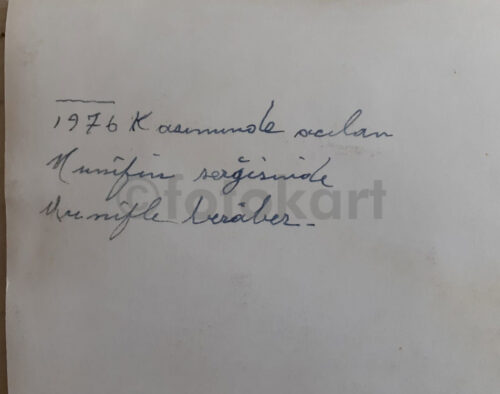 1976 Kasımında açılan
Munifin sergisinide
Munifle beraber -
©fotokart